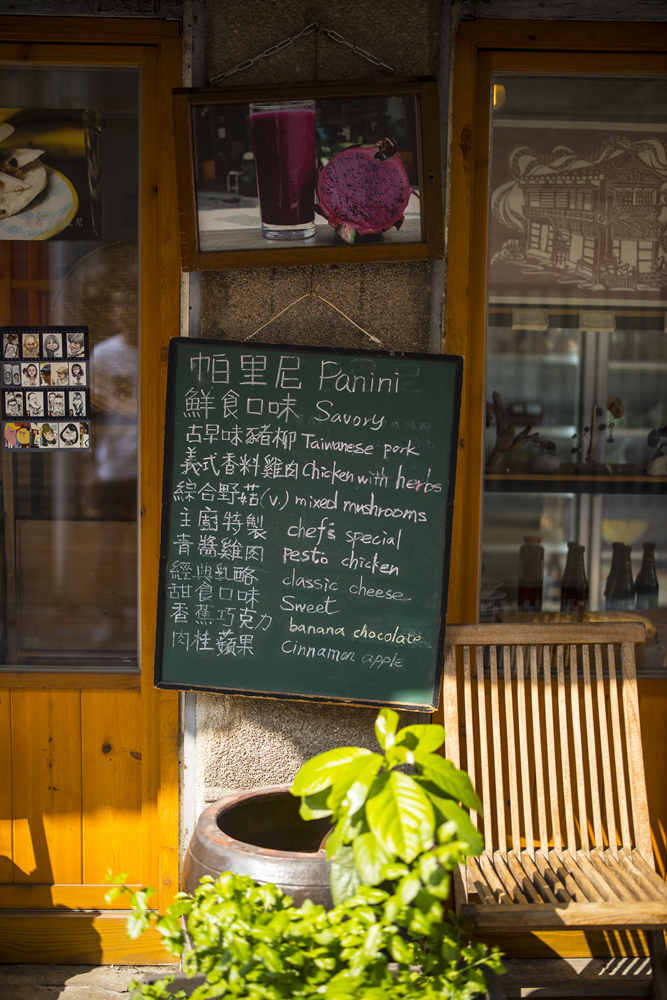 帕里尼 Panini
鮮食口味 Savory
古早味豬柳 Taiwanese pork
義式香料雞肉 Chicken with herbs
綜合野菇(v.) mixed mushrooms
主廚特製 chef's special
青醬雞肉 pesto chicken
經典乳酪 classic cheese
甜食口味 Sweet
香蕉巧克力 banana chocolate
肉桂蘋果 Cinnamon apple